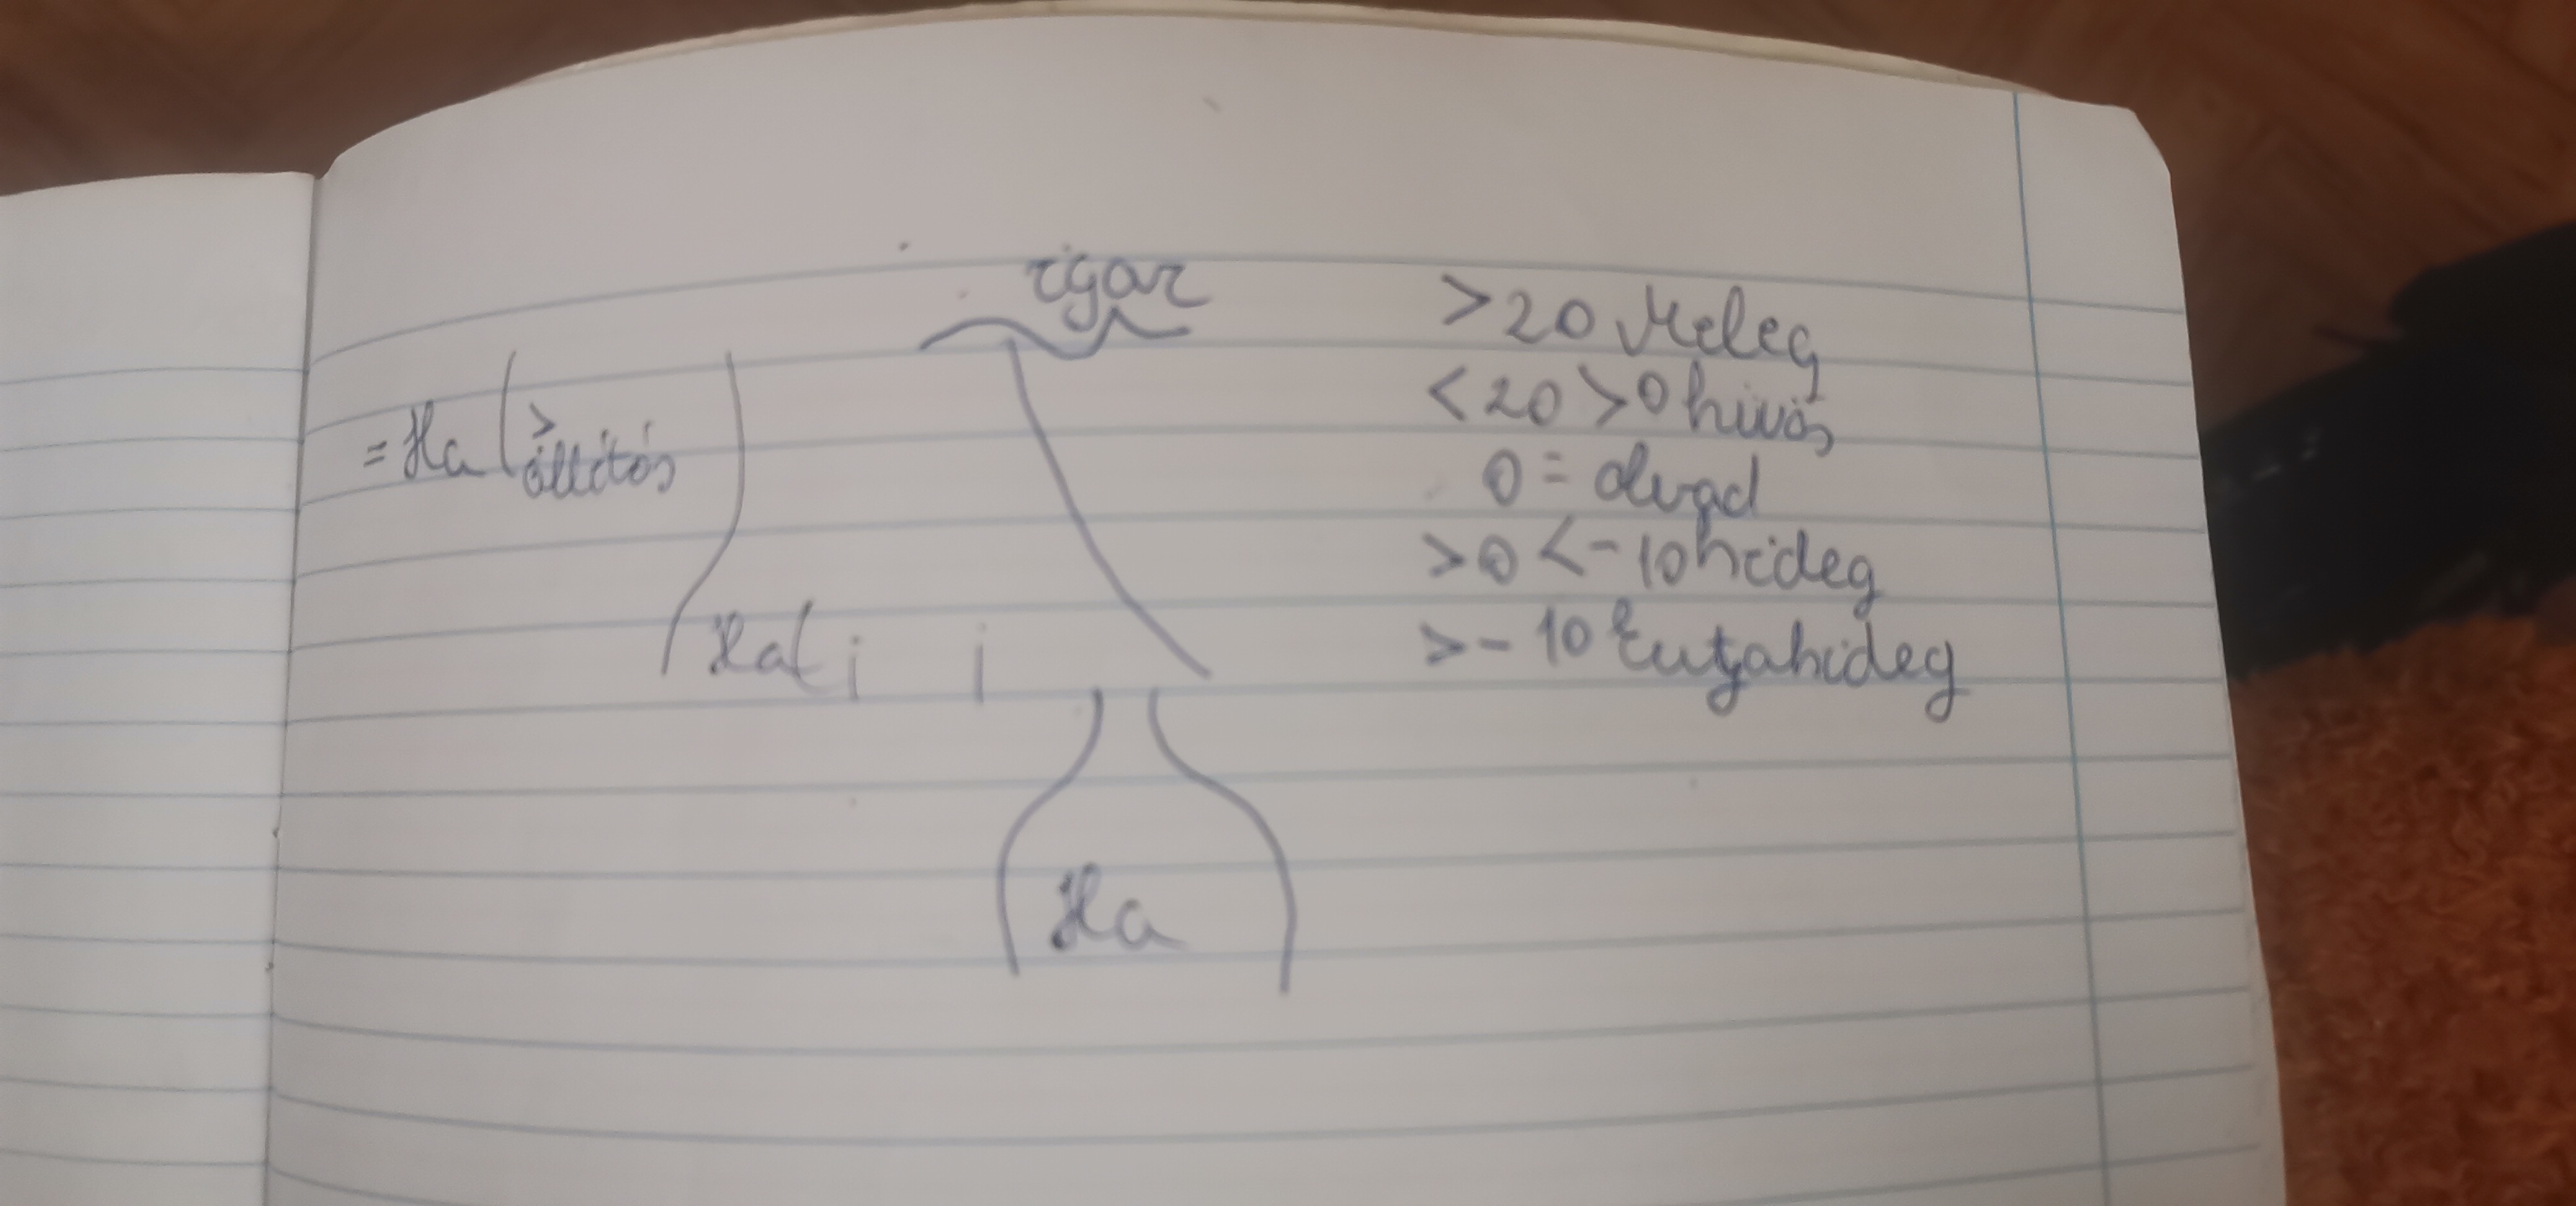 igaz
= Ha ( > állítás
Ha( ; ;
Ha
>20 Meleg
<20 >0 hűvös
0 = olvad
>0 <-10 hideg
>-10 kutyahideg